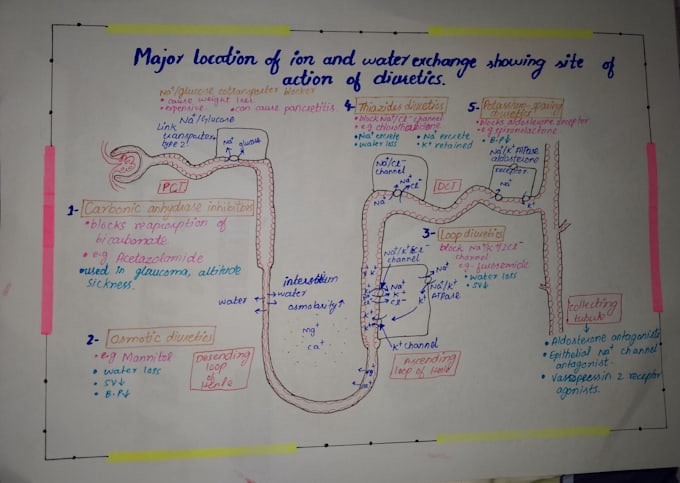 Major location of ion and water exchange showing site of
action of diuretics.
Na⁺/glucose cotransporter blocker
• cause weight loss.
• expensive. • can cause pancreatitis.
Na⁺/Glucose
Link
transporter
type 2
Na⁺ glucose
PCT
1- Carbonic anhydrase inhibitors
• blocks reabsorption of
bicarbonate.
• e.g Acetazolamide
• used in glaucoma, altitude
sickness.
2- Osmotic diuretics
• e.g Mannitol
• water loss
• SV↓
• B.P↓
Desending
loop
of
Henle
water
interstium
water
osmolarity↑
Mg⁺
Ca⁺
4- Thiazides diuretics
• block Na⁺/Cl⁻ channel
• e.g chlorthalidone
• Na⁺ excrete
• water loss
• Na⁺ excrete
K⁺ retained
Na⁺/Cl⁻
channel
Na⁺ Cl⁻
DCT
5- Potassium-sparing
diuretics
• blocks aldosterone receptor
• e.g spironelactone
• B.P↓
Na⁺/K⁺ ATPase
aldosterone
receptor
Na⁺
K⁺
3- Loop diuretics
block Na⁺/K⁺/2Cl⁻
channel
eg- furosemide
• water loss
• SV↓
Na⁺/K⁺/2Cl⁻
channel
Na⁺
K⁺
Cl⁻
Na⁺
Na⁺/K⁺
ATPase
K⁺
K⁺
K⁺ channel
Ascending
loop of Henle
collecting
tubule
• Aldosterone antagonists
• Epithelial Na⁺ channel
antagonist.
• Vassopressin 2 receptor
agonists.